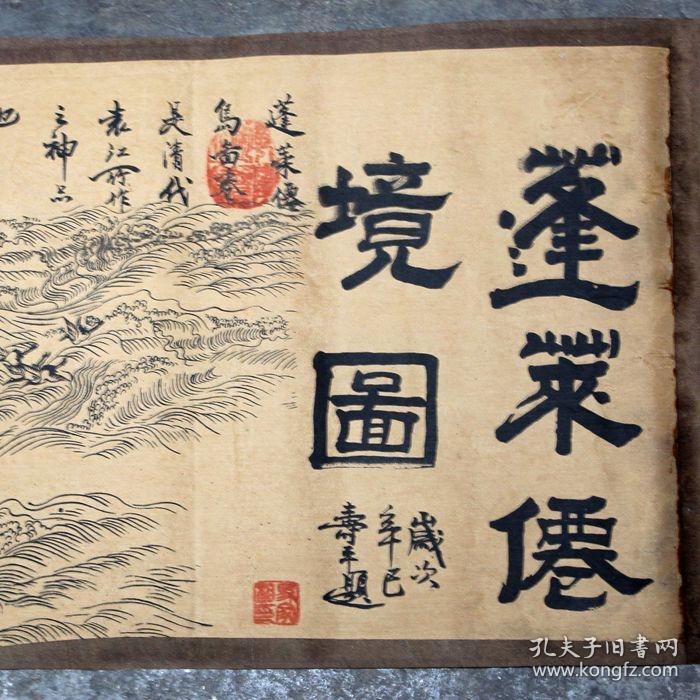 蓬莱僊
境圖
歲次
辛巳
壽平題
蓬莱僊
島圖卷
是清代
袁江所作
之神品
也
孔夫子旧书网
www.kongfz.com